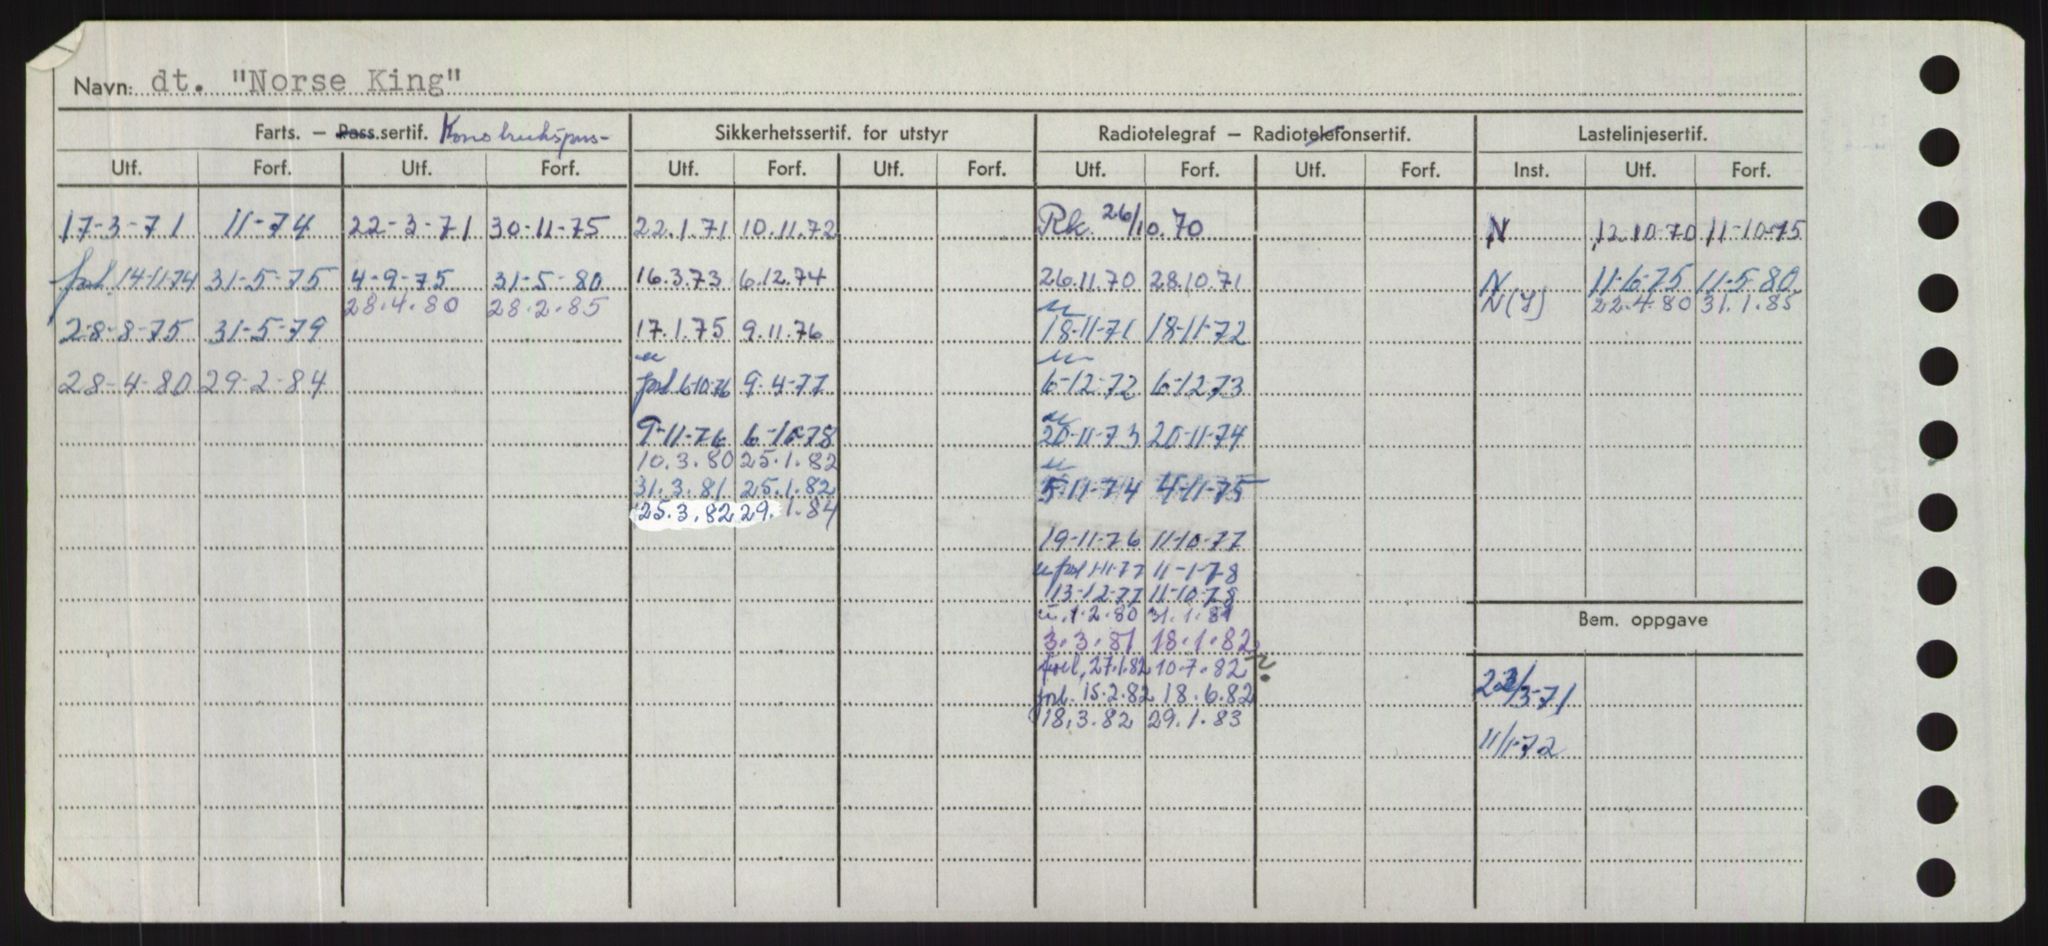 Navn: dt. "Norse King"
Farts. – Pass.sertif. Konstruksjons- Sikkerhetssertif. for utstyr Radiotelegraf – Radiotelefonsertif. Lastelinjesertif.
Utf. Forf. Utf. Forf. Utf. Forf. Utf. Forf. Utf. Forf. Utf. Forf. Inst. Utf. Forf.
17-3-71 11-74 22-3-71 30-11-75 22.1.71 10.11.72 Rk. 26/10.70 N 12.10.70 11-10-75
forl. 14-11-74 31-5-75 4-9-75 31-5-80 16.3.73 6.12.74 26.11.70 28.10.71 N 11-6-75 11-5-80
28.4.80 28.2.85 N(I) 22.4.80 31.1.85
28-8-75 31-5-79 17.1.75 9.11.76 u 18-11-71 18-11-72
28-4-80 29-2-84 u forl 6-10-76 9-4-77 u 6-12-72 6-12-73
9-11-76 6-10-78 u 20-11-73 20-11-74
10.3.80 25.1.82 u
31.3.81 25.1.82 5-11-74 4-11-75
25.3.82 29.1.84
19-11-76 11-10-77
u forl 1-11-77 11-1-78
13-12-77 11-10-78
u. 1.2.80 31.1.81
3.3.81 18.1.82
Bem. oppgave
forl. 27.1.82 10.7.82
forl. 15.2.82 18.6.82 22/3-71
18.3.82 29.1.83
11/1-72